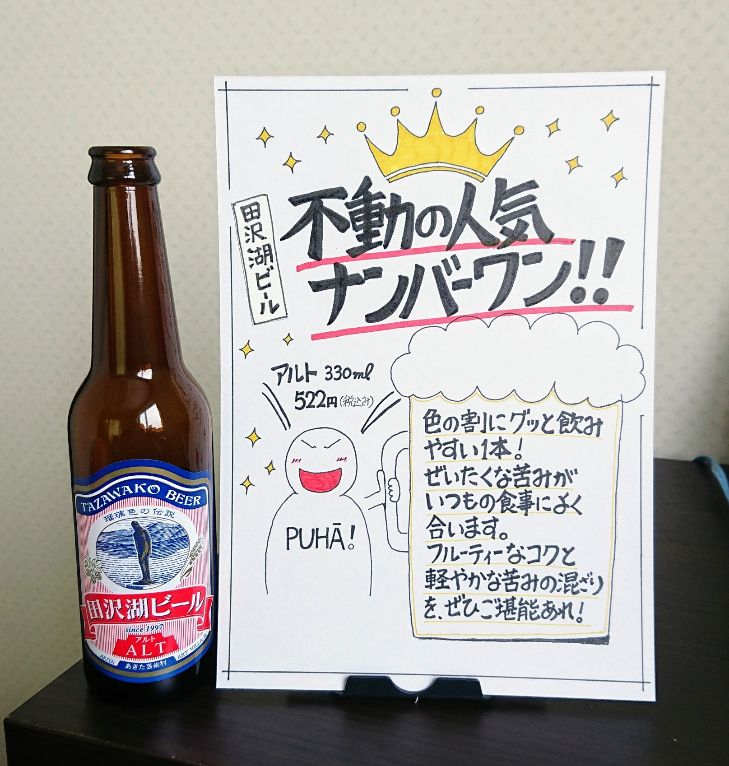 田沢湖ビール
不動の人気
ナンバーワン!!
アルト 330ml
522円(税込み)
PUHĀ!
色の割にグッと飲み
やすい1本!
ぜいたくな苦みが
いつもの食事によく
合います。
フルーティーなコクと
軽やかな苦みの混ざり
を、ぜひご堪能あれ!
TAZAWAKO BEER
瑠璃色の伝説
田沢湖ビール
since 1997
アルト
ALT
あきた芸術村